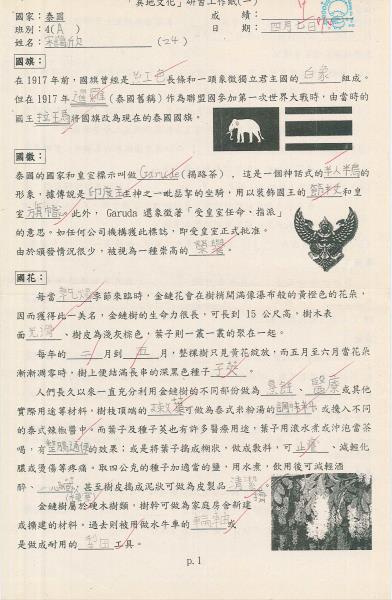 「異地文化」研習工作紙(一)
國家：泰國
成績：
班別：4(A)
日期：四月七日
姓名：(24)
國旗：
在1917年前，國旗曾經是紅色長條和一頭象徵獨立君主的白象組成。
但在1917年暹羅(泰國舊稱)作為聯盟國參加第一次世界大戰時，由當時的
國王拉瑪將國旗改為現在的泰國國旗。
國徽：
泰國的國家和皇室標示叫做Garuda(揭路茶)，這是一個神話式的半人半鳥的
形象，據傳說是印度主神之一毗瑟挐的坐騎，用以裝飾國王的和皇
室旗幟。此外，Garuda 還象徵著「受皇室任命、指派」
的意思。如任何公司機構獲此標誌，即受皇室正式批准。
由於頒發情況很少，被視為一種崇高的榮譽。
國花：
每當乾燥季節來臨時，金鏈花會在樹梢開滿像瀑布般的黃橙色的花朵，
因而獲得此一美名，金鏈樹的生命力很強，可長到 15 公尺高，樹木表
面光滑、樹皮為淺灰棕色，葉子則一叢一叢的聚在一起。
每年的二月到五月，整棵樹只見黃花綻放，而五月至六月當花朵
漸漸凋零時，樹上便結滿長串的深黑色種子子莢。
人們長久以來一直充分利用金鏈樹的不同部份做為烹飪、醫療或其他
實際用途等材料，樹枝頂端的嫩葉可做為泰式米粉湯的調味料或摻入不同
的泰式辣椒醬中。而葉子及種子莢也有許多醫療用途，葉子用滾水煮或沖泡當茶
喝，有整腸通便的效果；或是將葉子搗成糊狀，做成敷料，可止癢、減輕化
膿或燙傷等疼痛。取四公克的種子加適當的鹽，用水煮，飲用後可減輕酒
醉、甚至樹皮搗成泥狀可做為皮製品清潔
金鏈樹屬於硬木樹類，樹幹可做為家庭房舍新建
或擴建的材料，過去則被用做水牛車的輪軸或
是做成耐用的犁田工具。
p.1